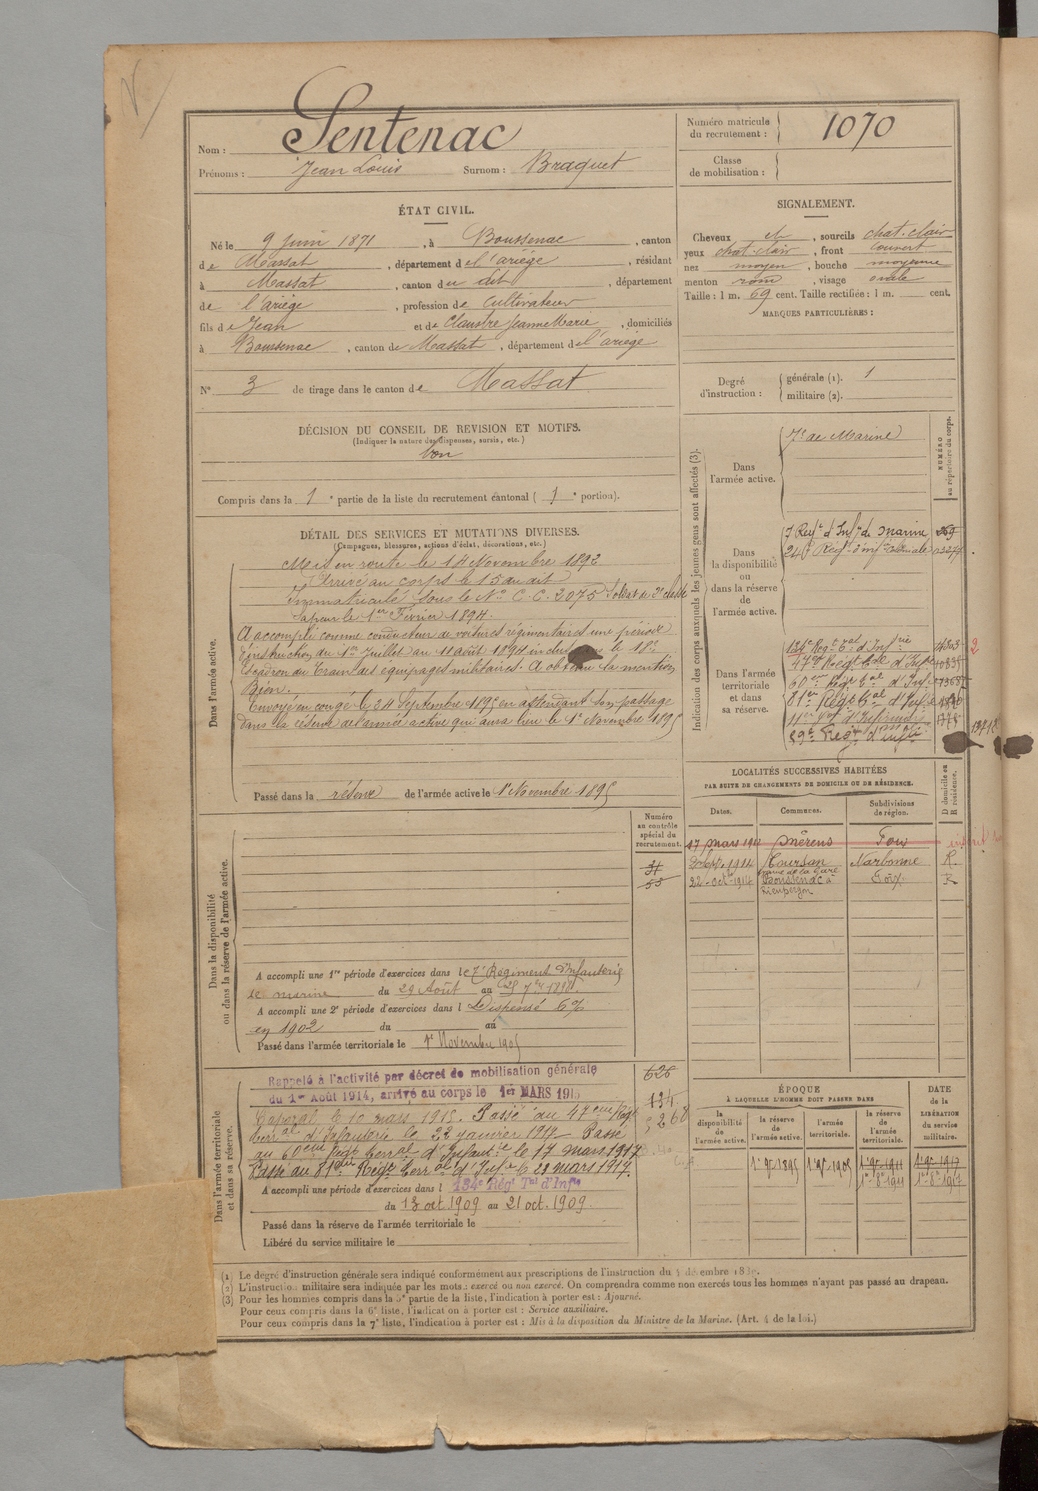 Nom : Sentenac
Prénoms : Jean Louis Surnom : Braquet
Numéro matricule du recrutement : 1070
Classe de mobilisation :
ÉTAT CIVIL.
Né le 9 Juin 1871, à Boussenac, canton
de Massat, département de l'ariège, résidant
à Massat, canton du dit, département
de l'ariège, profession de Cultivateur
fils de Jean et de Claustre Jeanne Marie, domiciliés
à Boussenac, canton de Massat, département de l'ariège
N° 3 de tirage dans le canton de Massat
SIGNALEMENT.
Cheveux et, sourcils chat. clair
yeux chat. clair, front couvert
nez moyen, bouche moyenne
menton rond, visage ovale
Taille : 1 m. 69 cent. Taille rectifiée : 1 m. cent.
MARQUES PARTICULIÈRES :
Degré d'instruction : générale (1). 1
militaire (2).
DÉCISION DU CONSEIL DE REVISION ET MOTIFS.
(Indiquer la nature des dispenses, sursis, etc.)
bon
Compris dans la 1e partie de la liste du recrutement cantonal ( 1e portion).
DÉTAIL DES SERVICES ET MUTATIONS DIVERSES.
(Campagnes, blessures, actions d'éclat, décorations, etc.)
Dans l'armée active.
Mis en route le 14 Novembre 1892
Arrivé au corps le 15 du dit
Immatriculé sous le N° C.C. 2075 Soldat de 2e classe
Sapeur le 1er Février 1894.
A accompli comme conducteur de voitures régimentaires une période
d'instruction du 1er Juillet au 11 août 1894 inclus le 18e
Escadron du Train des équipages militaires. A obtenu la mention
Bien.
Envoyé en congé le 24 Septembre 1895 en attendant son passage
dans la réserve de l'armée active qui aura lieu le 1er Novembre 1895
Passé dans la réserve de l'armée active le 1er Novembre 1895
Indication des corps auxquels les jeunes gens sont affectés (3).
NUMÉRO au répertoire du corps.
Dans l'armée active.
7e de Marine
Dans la disponibilité ou dans la réserve de l'armée active.
7 Regt d'Infie de Marine 269
24e Regt d'infie Coloniale 03277
Dans l'armée territoriale et dans sa réserve.
134e Regt Tal d'Infie 4303 2
47e Regt Tal d'Infie
60eme Regt Tal d'Infie
81er Regt Tal d'Infie
89e Regt d'Infie
LOCALITÉS SUCCESSIVES HABITÉES
PAR SUITE DE CHANGEMENTS DE DOMICILE OU DE RÉSIDENCE.
Dates. Communes. Subdivisions de région. D domicile ou R résidence.
Mérens Foix
Sept. 1914 Coursan Narbonne R
22 Oct. 1914 Boussenac à Foix R
Numéro au contrôle spécial du recrutement.
Dans la disponibilité ou dans la réserve de l'armée active.
A accompli une 1re période d'exercices dans le 7e Régiment d'Infanterie
de marine du 29 Août au 25 7bre 1898.
A accompli une 2e période d'exercices dans l Dispensé 6%
en 1902 du au
Passé dans l'armée territoriale le 1er Novembre 1905
Dans l'armée territoriale et dans sa réserve.
Rappelé à l'activité par décret de mobilisation générale
du 1er Août 1914, arrivé au corps le 1er MARS 1915
Caporal le 10 mars 1915. Passé au 47eme Regt
Terral d'Infanterie le 22 janvier 1917 Passé
au 60eme Regt Terral d'Infante le 17 mars 1917
Passé au 81eme Regt Terral d'Infie le 21 mars 1917.
A accompli une période d'exercices dans l 134e Régt Tal d'Infie
du 13 oct 1909 au 21 oct. 1909.
Passé dans la réserve de l'armée territoriale le
Libéré du service militaire le
626
134
ÉPOQUE
A LAQUELLE L'HOMME DOIT PASSER DANS
la disponibilité de l'armée active. la réserve de l'armée active. l'armée territoriale. la réserve de l'armée territoriale.
DATE DE LA LIBÉRATION du service militaire.
1er 9bre 1895 1er 9bre 1905 1er 9bre 1911 1er 9bre 1917
(1) Le degré d'instruction générale sera indiqué conformément aux prescriptions de l'instruction du 4 décembre
(2) L'instruction militaire sera indiquée par les mots : exercé ou non exercé. On comprendra comme non exercés tous les hommes n'ayant pas passé au drapeau.
(3) Pour les hommes compris dans la 5e partie de la liste, l'indication à porter est : Ajourné.
Pour ceux compris dans la 6e liste, l'indication à porter est : Service auxiliaire.
Pour ceux compris dans la 7e liste, l'indication à porter est : Mis à la disposition du Ministre de la Marine. (Art. 4 de la loi.)